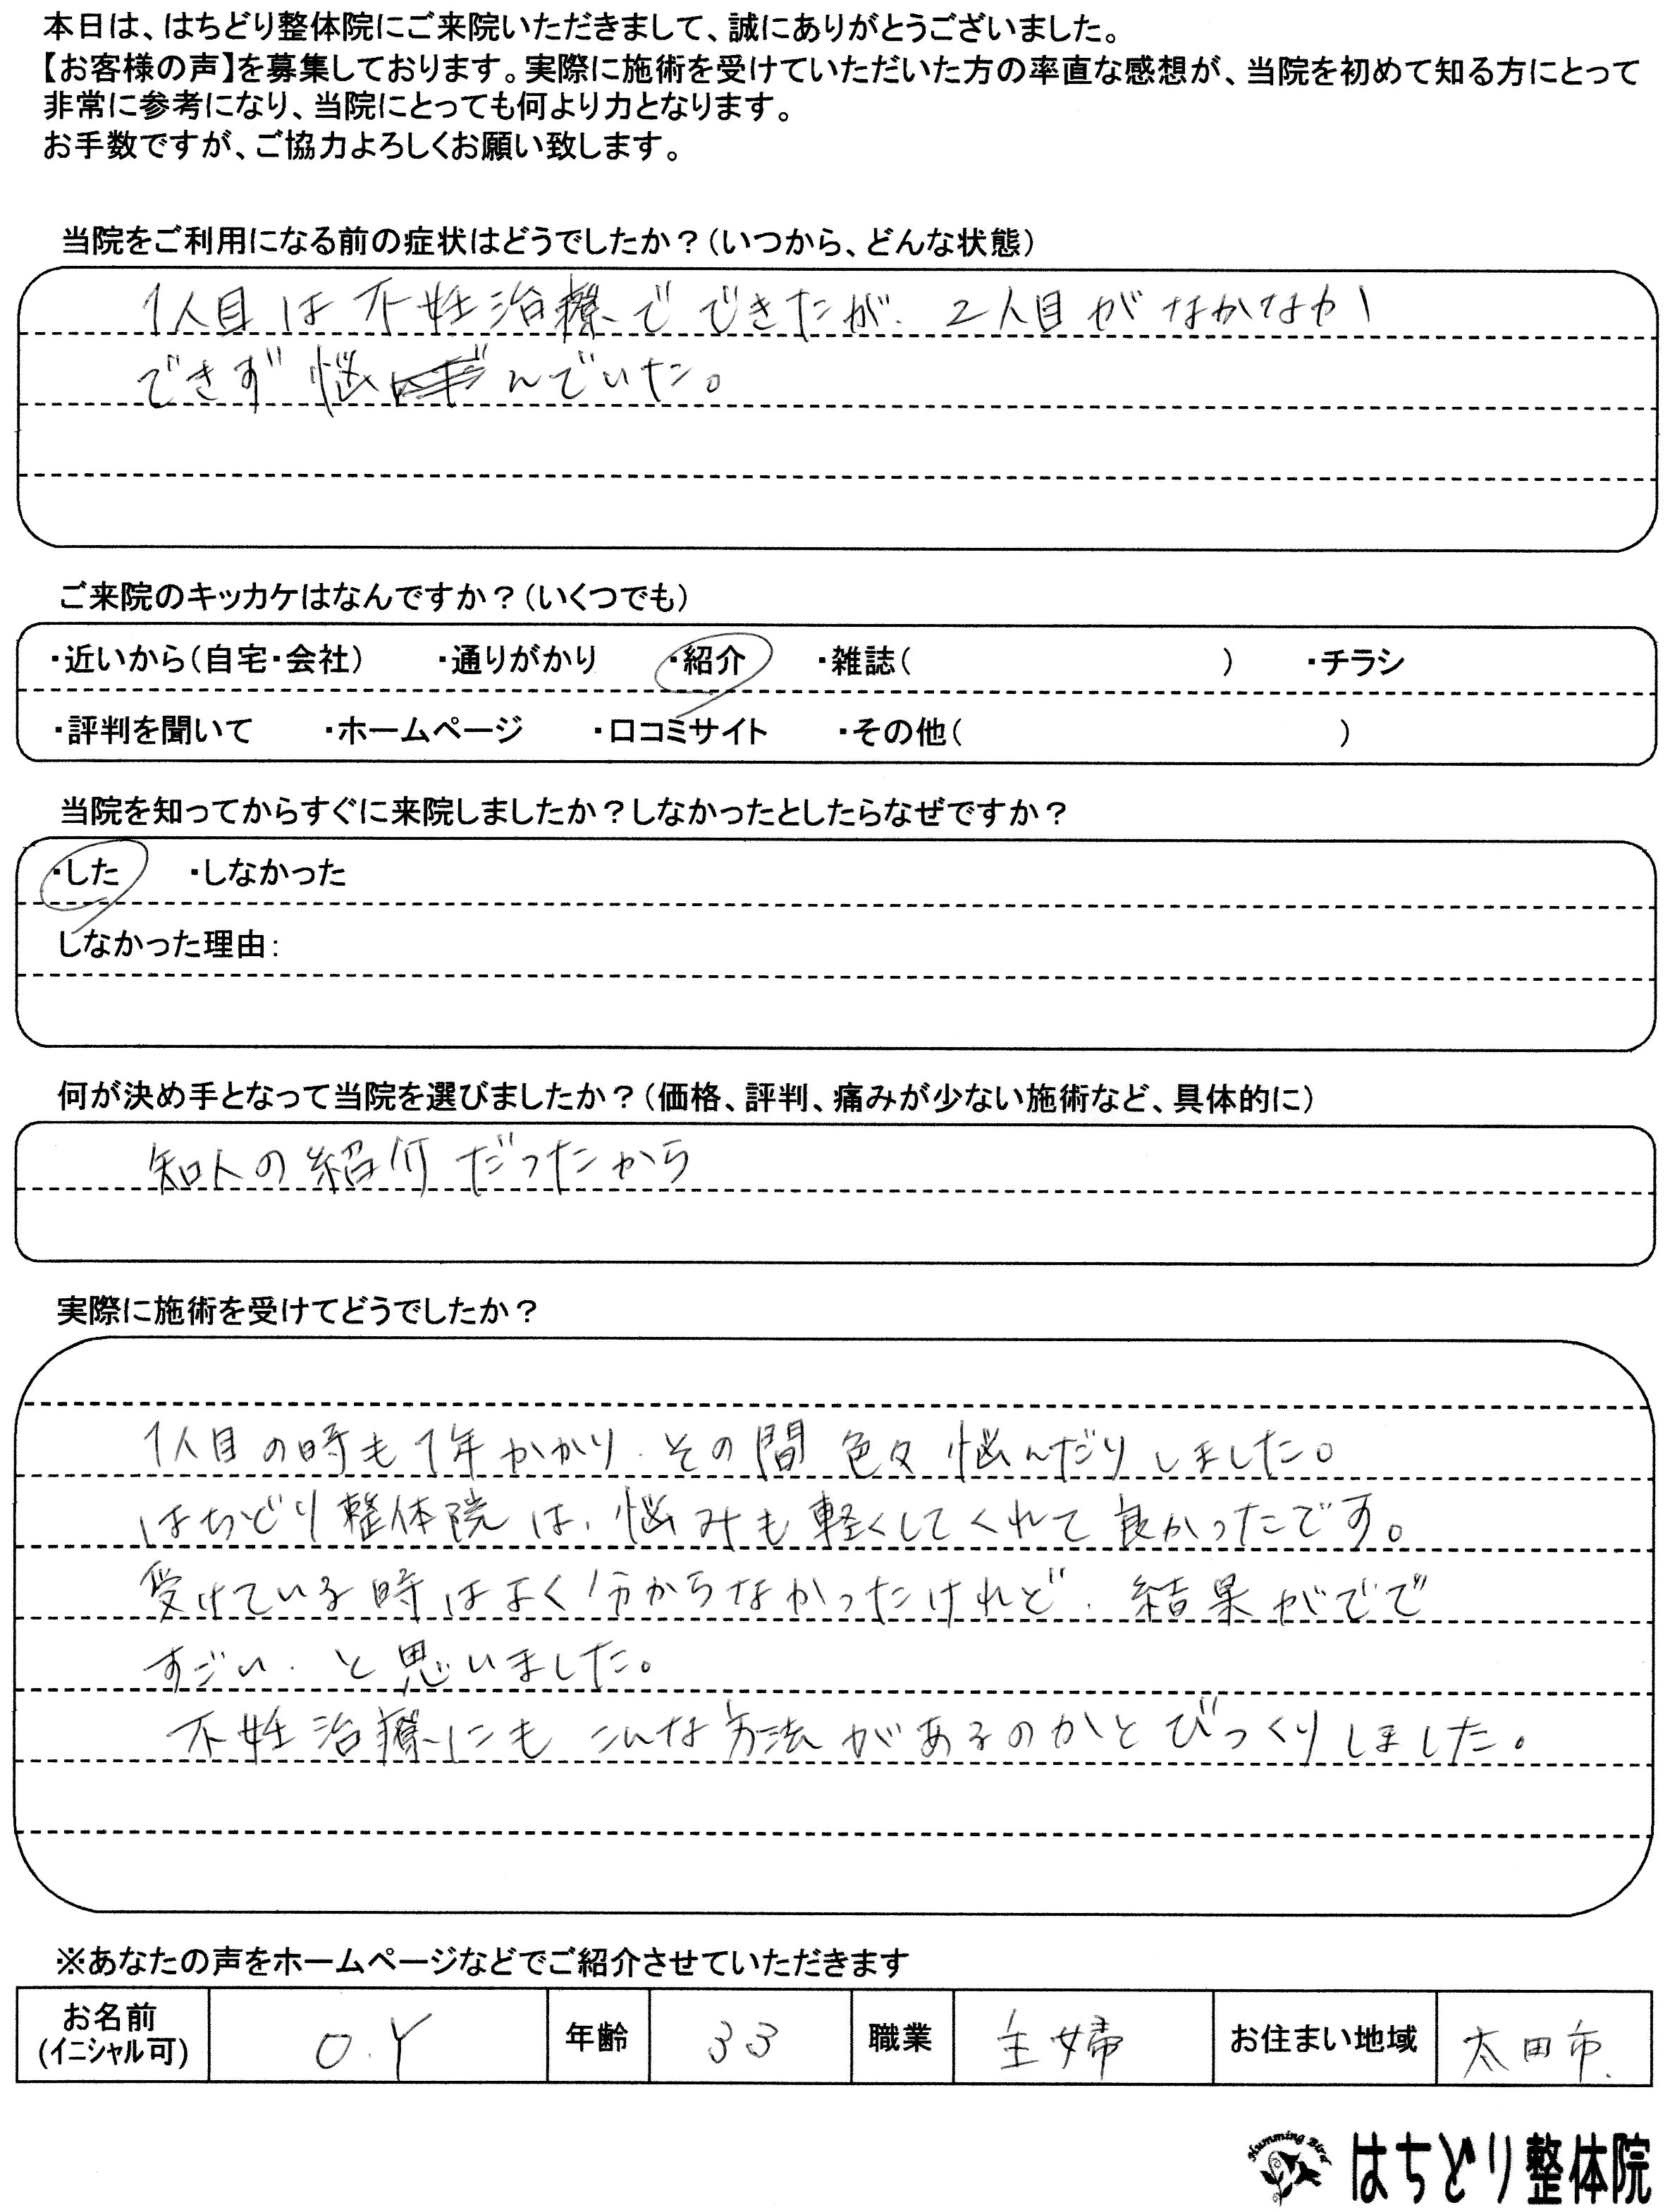 本日は、はちどり整体院にご来院いただきまして、誠にありがとうございました。
【お客様の声】を募集しております。実際に施術を受けていただいた方の率直な感想が、当院を初めて知る方にとって
非常に参考になり、当院にとっても何より力となります。
お手数ですが、ご協力よろしくお願い致します。
当院をご利用になる前の症状はどうでしたか？（いつから、どんな状態）
1人目は不妊治療でできたが、2人目がなかなか
できず悩んでいた。
ご来院のキッカケはなんですか？（いくつでも）
・近いから（自宅・会社） ・通りがかり ・紹介 ・雑誌（ ） ・チラシ
・評判を聞いて ・ホームページ ・口コミサイト ・その他（ ）
当院を知ってからすぐに来院しましたか？しなかったとしたらなぜですか？
・した ・しなかった
しなかった理由：
何が決め手となって当院を選びましたか？（価格、評判、痛みが少ない施術など、具体的に）
知人の紹介だったから
実際に施術を受けてどうでしたか？
1人目の時も1年かかり、その間色々悩んだりしました。
はちどり整体院は、悩みも軽くしてくれて良かったです。
受けている時はよく分からなかったけれど、結果がでで
すごい、と思いました。
不妊治療にもこんな方法があるのかとびっくりしました。
※あなたの声をホームページなどでご紹介させていただきます
お名前 (イニシャル可) O.Y 年齢 33 職業 主婦 お住まい地域 太田市.
Humming Bird はちどり整体院